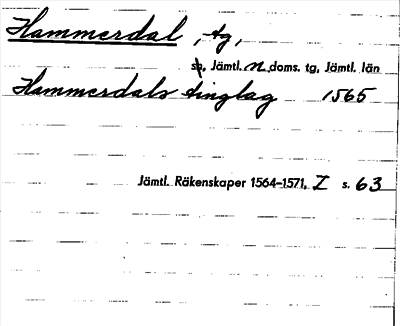 Hammerdal, tg,
sn, Jämtl. N doms. tg, Jämtl. län
Hammerdals tinglag 1565
Jämtl. Räkenskaper 1564-1571, I s. 63